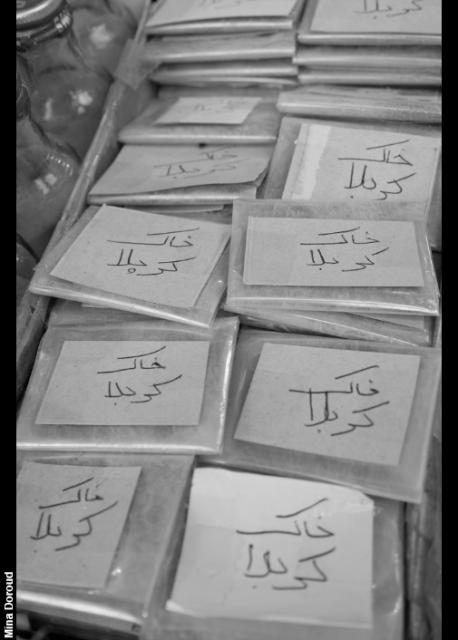 کربلا
خاک
کربلا
خاک
کربلا
خاک
کربلا
خاک
کربلا
خاک
کربلا
خاک
کربلا
خاک
کربلا
خاک
کربلا
Mina Doroud